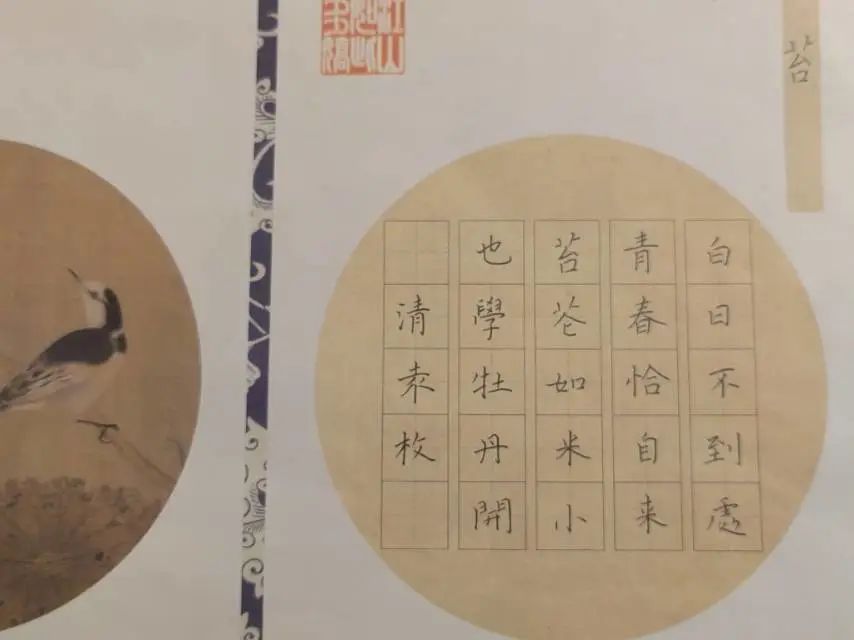 苔
白日不到處
青春恰自来
苔花如米小
也學牡丹開
清袁枚
江山如此多嬌